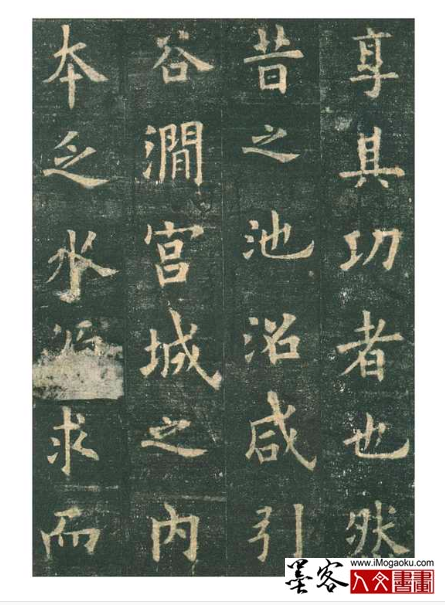 享其功者也然
昔之池沼咸引
谷澗宮城之內
本乏水源求而
www.iMogaoku.com
墨客
人文書畫